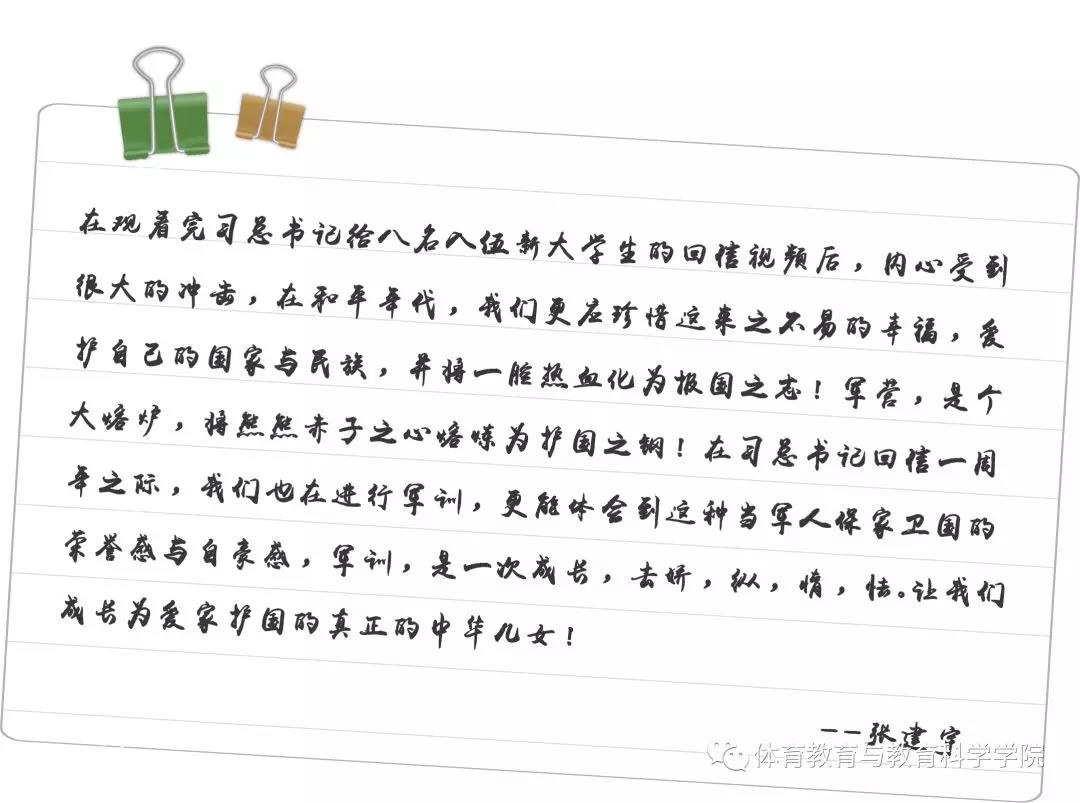 在观看完习总书记给八名入伍新大学生的回信视频后，内心受到
很大的冲击，在和平年代，我们更应珍惜这来之不易的幸福，爱
护自己的国家与民族，并将一腔热血化为报国之志！军营，是个
大熔炉，将熊熊赤子之心熔炼为护国之钢！在习总书记回信一周
年之际，我们也在进行军训，更能体会到这种当军人保家卫国的
荣誉感与自豪感，军训，是一次成长，去娇，纵，惰，怯。让我们
成长为爱家护国的真正的中华儿女！
--张建宇
体育教育与教育科学学院